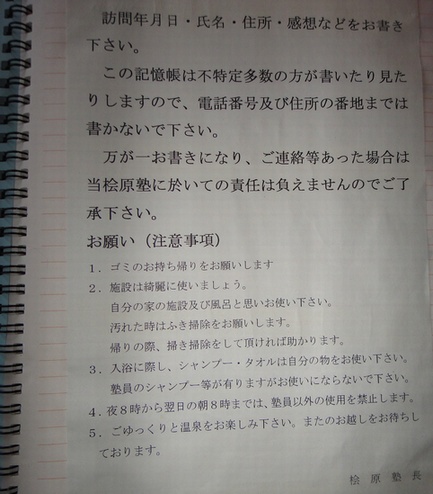 訪問年月日・氏名・住所・感想などをお書き
下さい。
この記憶帳は不特定多数の方が書いたり見た
りしますので、電話番号及び住所の番地までは
書かないで下さい。
万が一お書きになり、ご連絡等あった場合は
当桧原塾に於いての責任は負えませんのでご了
承下さい。
お願い（注意事項）
１．ゴミのお持ち帰りをお願いします
２．施設は綺麗に使いましょう。
自分の家の施設及び風呂と思いお使い下さい。
汚れた時はふき掃除をお願いします。
帰りの際、掃き掃除をして頂ければ助かります。
３．入浴に際し、シャンプー・タオルは自分の物をお使い下さい。
塾員のシャンプー等が有りますがお使いにならないで下さい。
４．夜８時から翌日の朝８時までは、塾員以外の使用を禁止します。
５．ごゆっくりと温泉をお楽しみ下さい。またのお越しをお待ちし
ております。
桧原塾長